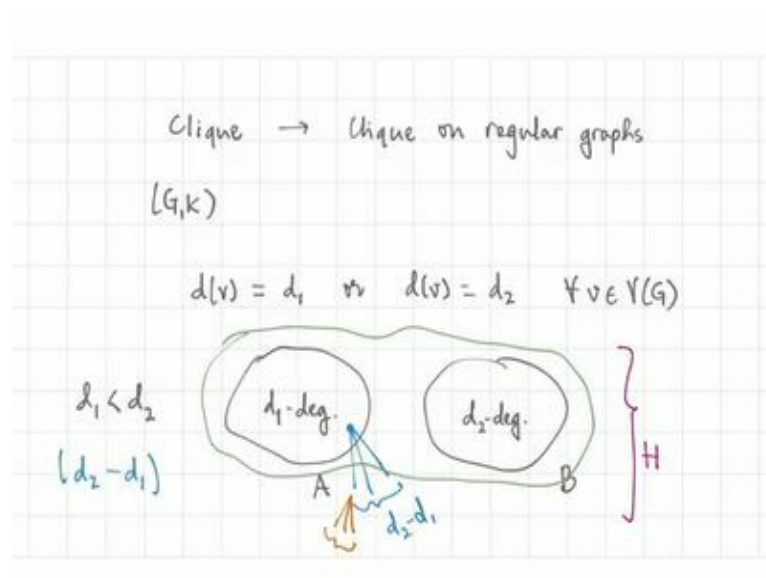 Clique → Clique on regular graphs
(G,K)
d(v) = d₁ or d(v) = d₂ ∀ v ∈ V(G)
d₁ < d₂
d₁-deg.
d₂-deg.
H
(d₂-d₁)
A
B
d₂-d₁